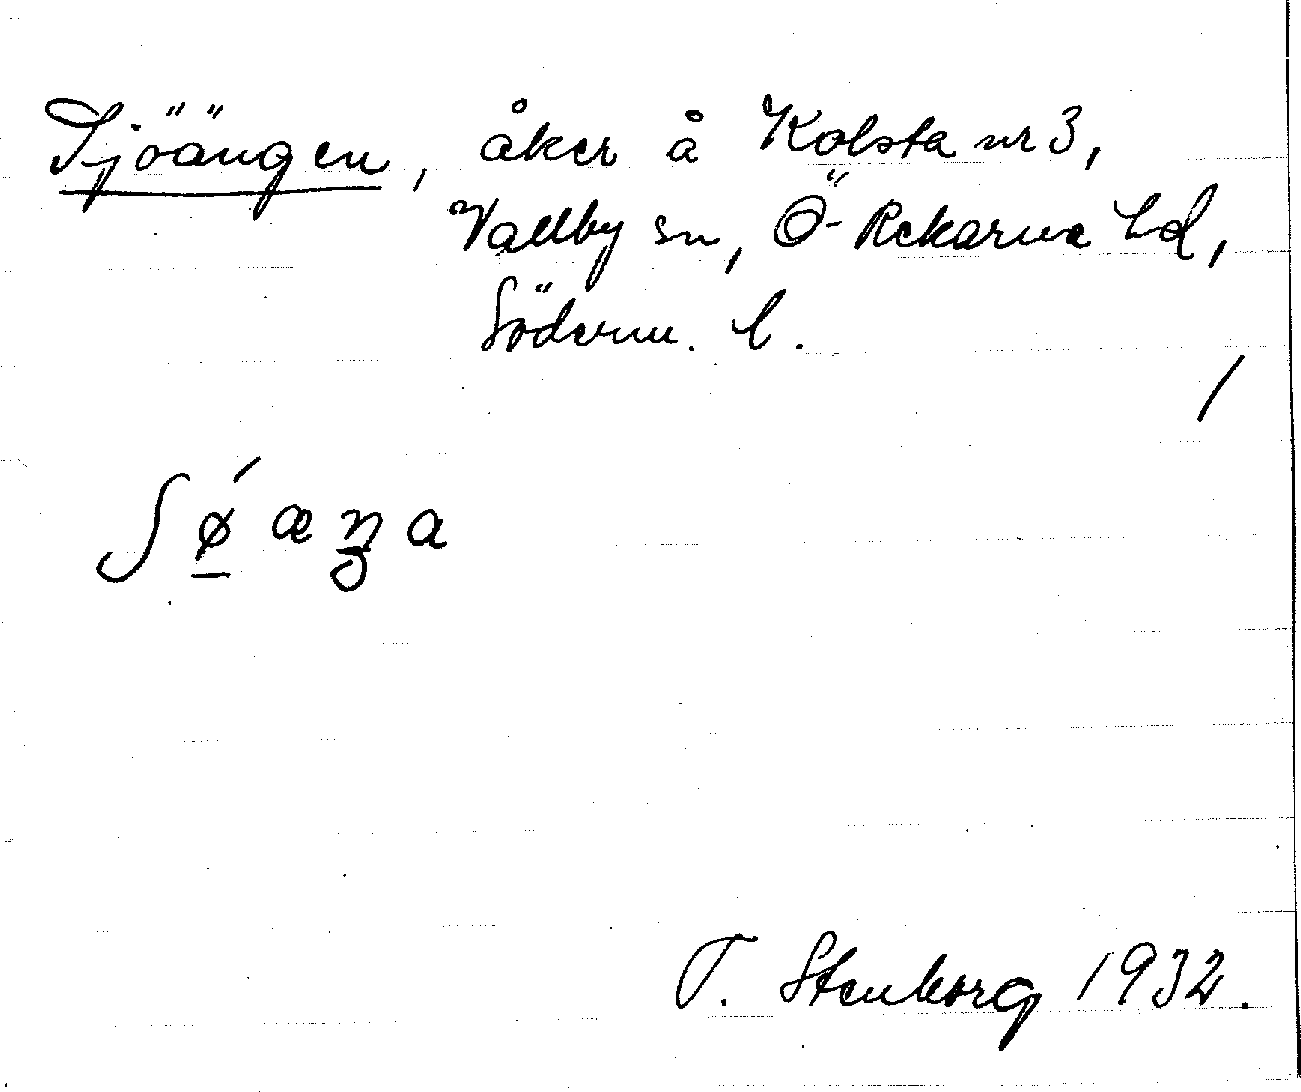 Sjöängen, åker å Kolsta nr 3,
Vallby sn, Ö-Rekarne hd,
Söderm. l.
/
ʃǿæŋa
T. Stenborg 1932.